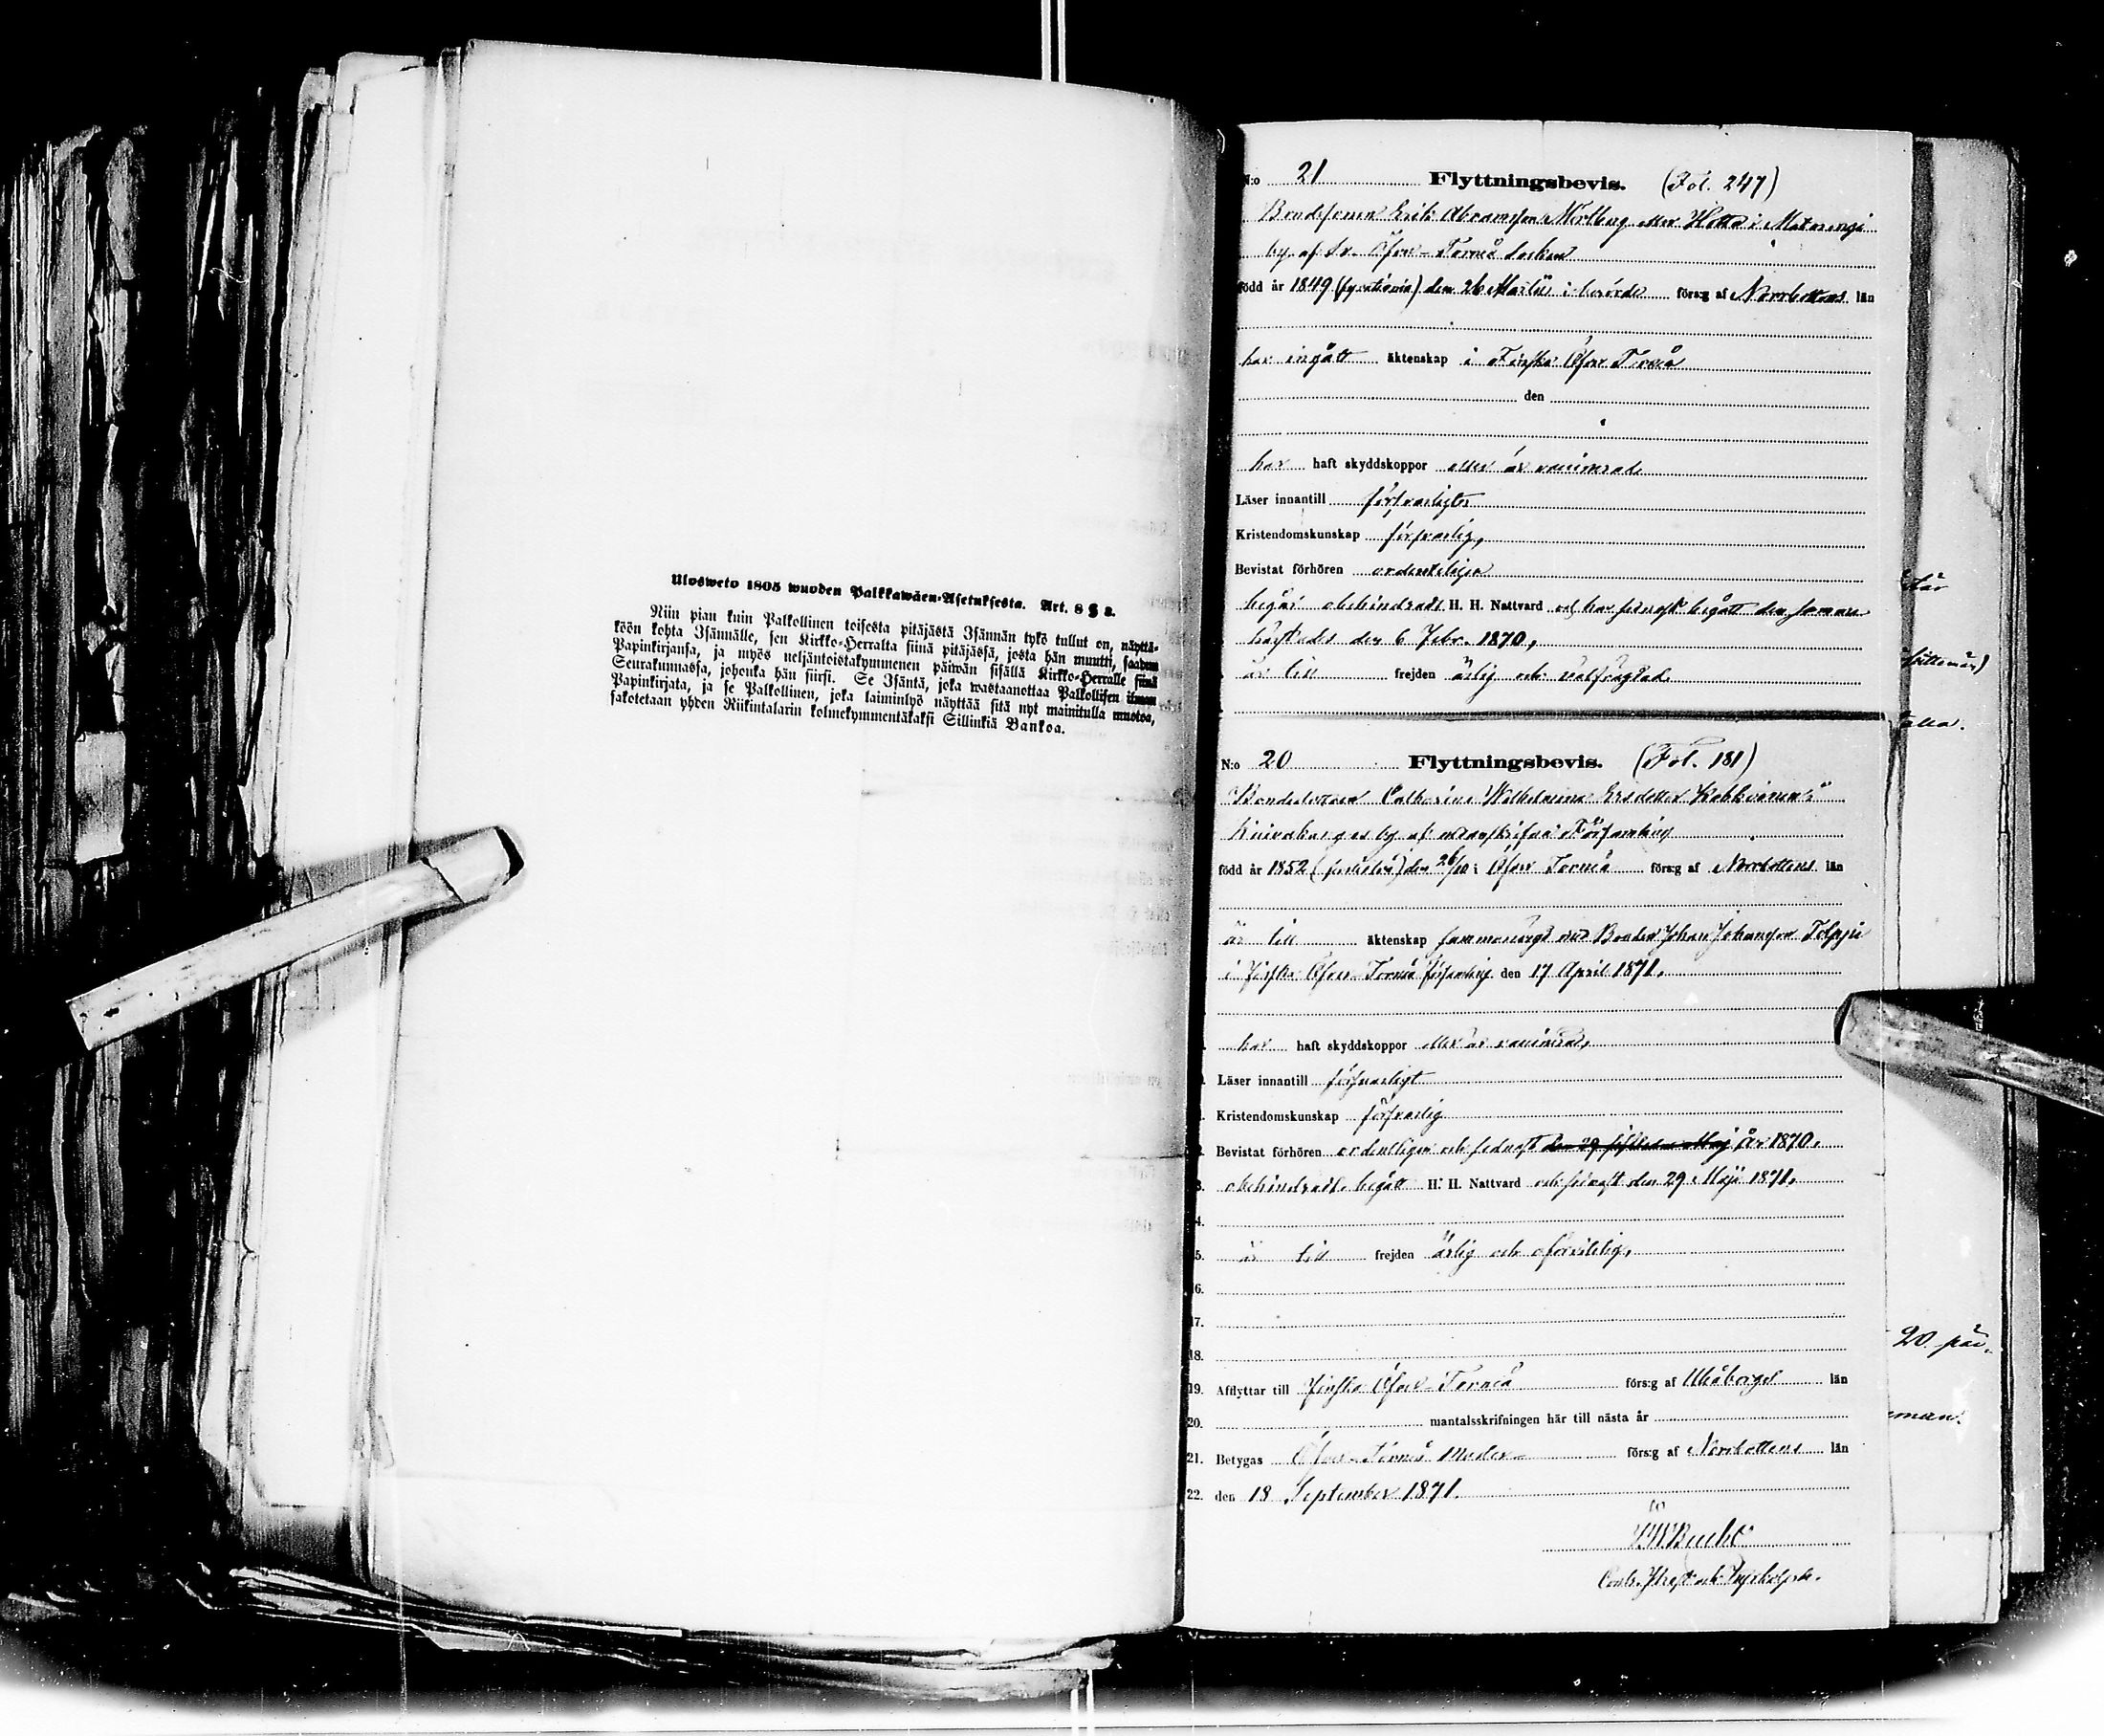 Ulosweto 1805 wuoden Palkkawäen-Asetuksesta. Art. 8 § 2.
Niin pian kuin Palkollinen toisesta pitäjästä Isännän tykö tullut on, näyttä-
köön kohta Isännälle, sen Kirkko-Herralta siinä pitäjässä, josta hän muutti, saadun
Papinkirjansa, ja myös neljäntoistakymmenen päiwän sisällä Kirkko-Herralle siinä
Seurakunnassa, johonka hän siirsi. Se Isäntä, joka wastaanottaa Palkollisen ilman
Papinkirjata, ja se Palkollinen, joka laiminlyö näyttää sitä nyt mainitulla muotoa,
sakotetaan yhden Riikintalarin kolmekymmentäkaksi Sillinkiä Bankoa.
N:o 21 Flyttningsbevis. (Fol. 247)
Bondesonen Erik Abramsson eller i Matarengi
by af Sv. Öfver-Torneå Socken
född år 1849 (fyrationio) den 26 Martii i berörde förs:g af Norrbottens län
har ingått äktenskap i Finska Öfver Torneå
den
har haft skyddskoppor eller är vaccinerad
Läser innantill försvarligt
Kristendomskunskap försvarlig,
Bevistat förhören ordentligen
begår obehindradt H. H. Nattvard och har senast begått den samma
högtides den 6 Febr. 1870,
är till frejden ärlig och välfrägdad.
N:o 20 Flyttningsbevis. (Fol. 181)
Bondedottren Catharina Wilhelmina Ersdotter i
by af Församling
född år 1852 (femtiotvå) den 26/10 i Öfver Torneå förs:g af Norrbottens län
är till äktenskap sammanvigd med Bonden Johan Johansson Tolppi
i Finska Öfver-Torneå församling den 17 April 1871.
har haft skyddskoppor eller är vaccinerad,
Läser innantill försvarligt
Kristendomskunskap försvarlig
Bevistat förhören ordentligen och senast år 1870.
obehindradt begått H. H. Nattvard och senast den 29 Maji 1871.
4.
5. är till frejden ärlig och oförvitelig,
16.
17.
18.
19. Afflyttar till Finska Öfver-Torneå förs:g af Uleåborgs län
20. mantalsskrifningen här till nästa år
21. Betygas Öfver-Torneå Moder- förs:g af Norrbottens län
22. den 18 September 1871.
20 päi